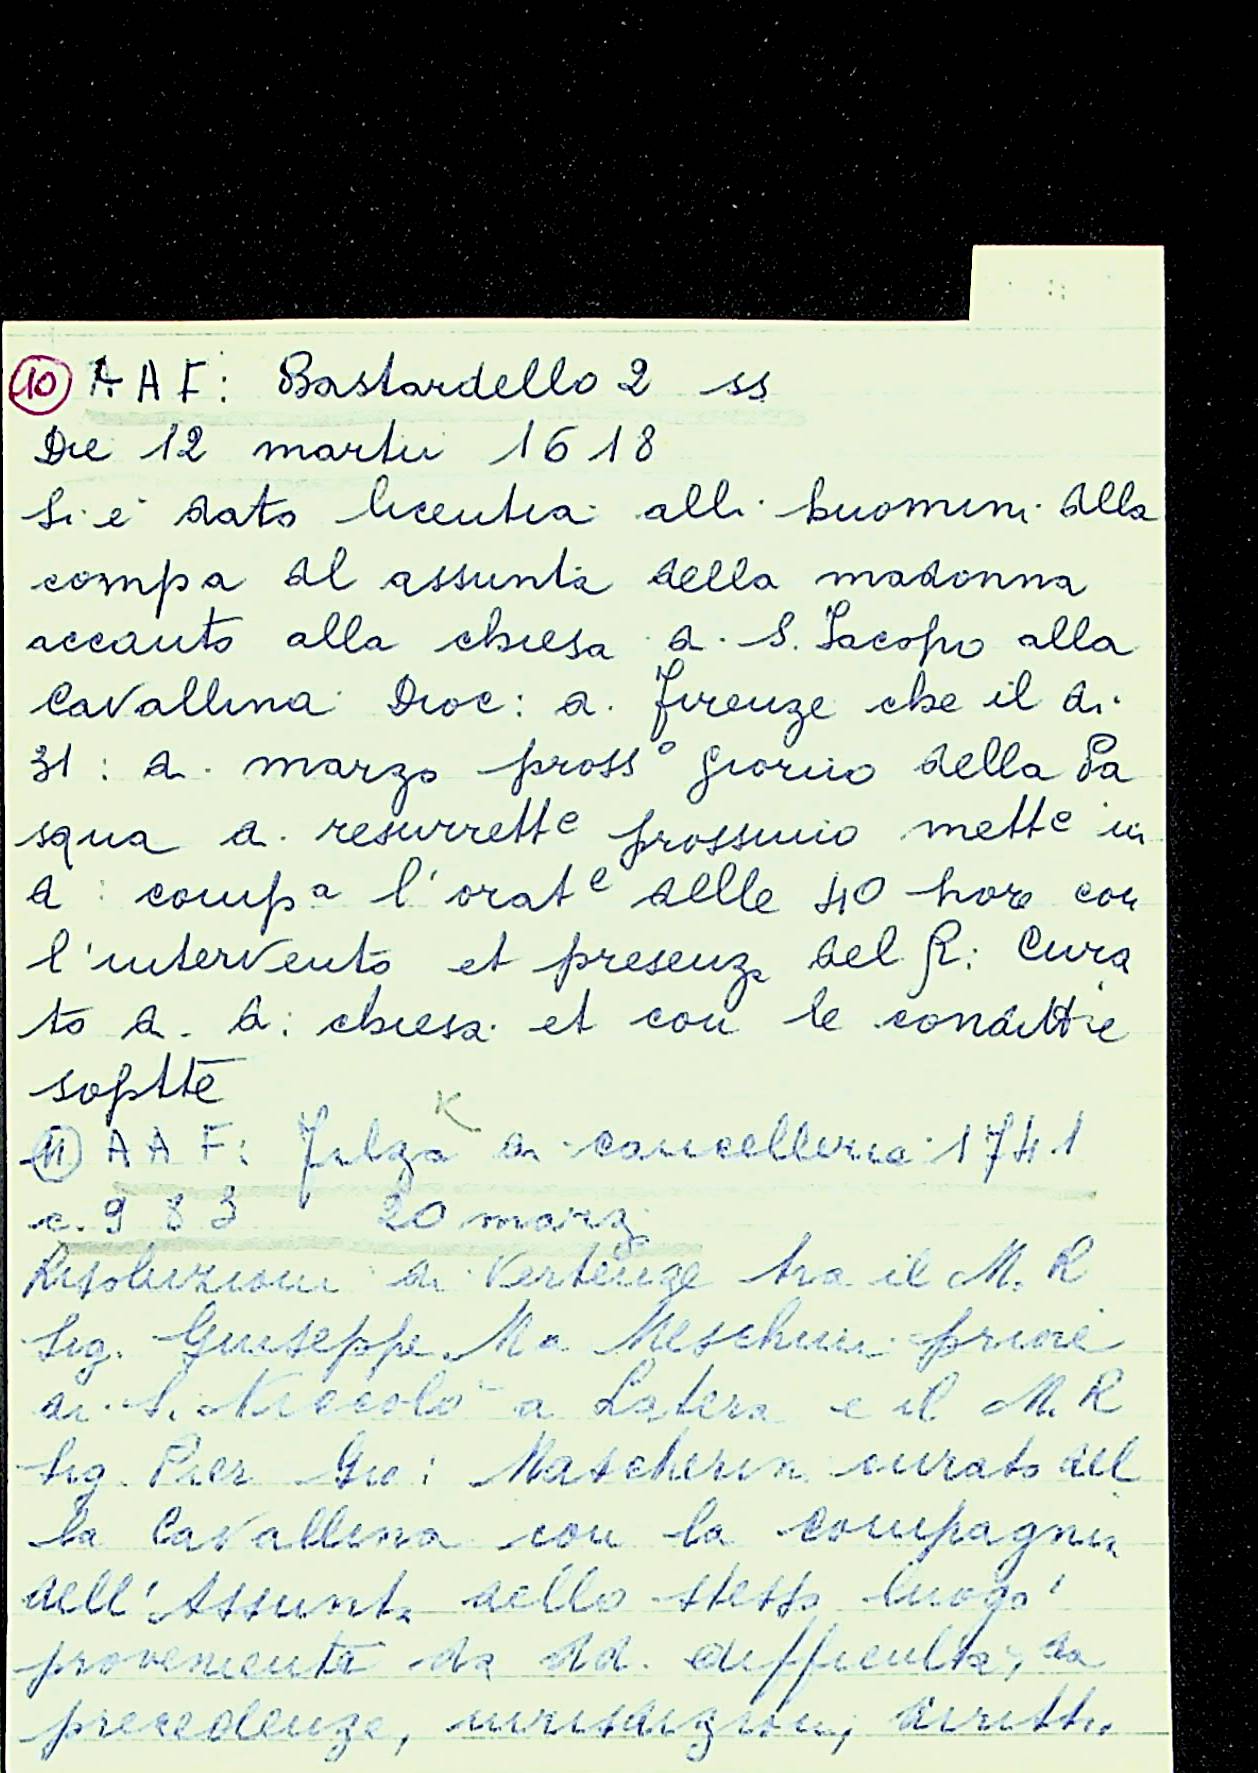 10 AAF: Bastardello 2 ss
Die 12 martii 1618
Si è dato licentia alli huomini della
compa del assunta della madonna
accanto alla chiesa di S. Jacopo alla
Cavallina Dioc: di Firenze che il di
31: di marzo pross° giorno della Pa
squa di resurrett^e prossimo mett^e in
d: comp^a l'orat^e delle 40 hore con
l'intervento et presenza del R: Cura
to di d: chiesa et con le condittie
soptte
11 AAF: Filza di cancelleria 1741
c. 983 20 marz.
Risoluzioni di vertenze tra il M. R
Sig. Giuseppe Ma Meschini priore
di S. Niccolò a Latera e il M. R
Sig. Pier Gio: Mascherini curato del
la Cavallina con la compagnia
dell'Assunta dello stesso luogo
provenienti da dd. difficultà, da
precedenze, iurisdizioni, diritti,